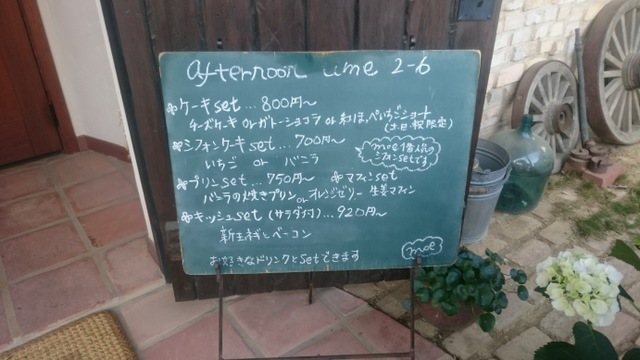 afternoon time 2-6
ケーキset…800円〜
チーズケーキ or ガトーショコラ or 紅ほっぺいちごショート
(土・日・祝限定)
シフォンケーキset…700円〜
いちご or バニラ
moe1番人気の
シフォンsetです
プリンset…750円〜
バニラの焼きプリン or オレンジゼリー
マフィンset
生姜マフィン
キッシュset (サラダ付)…920円〜
新玉ねぎとベーコン
お好きなドリンクとsetできます
moe